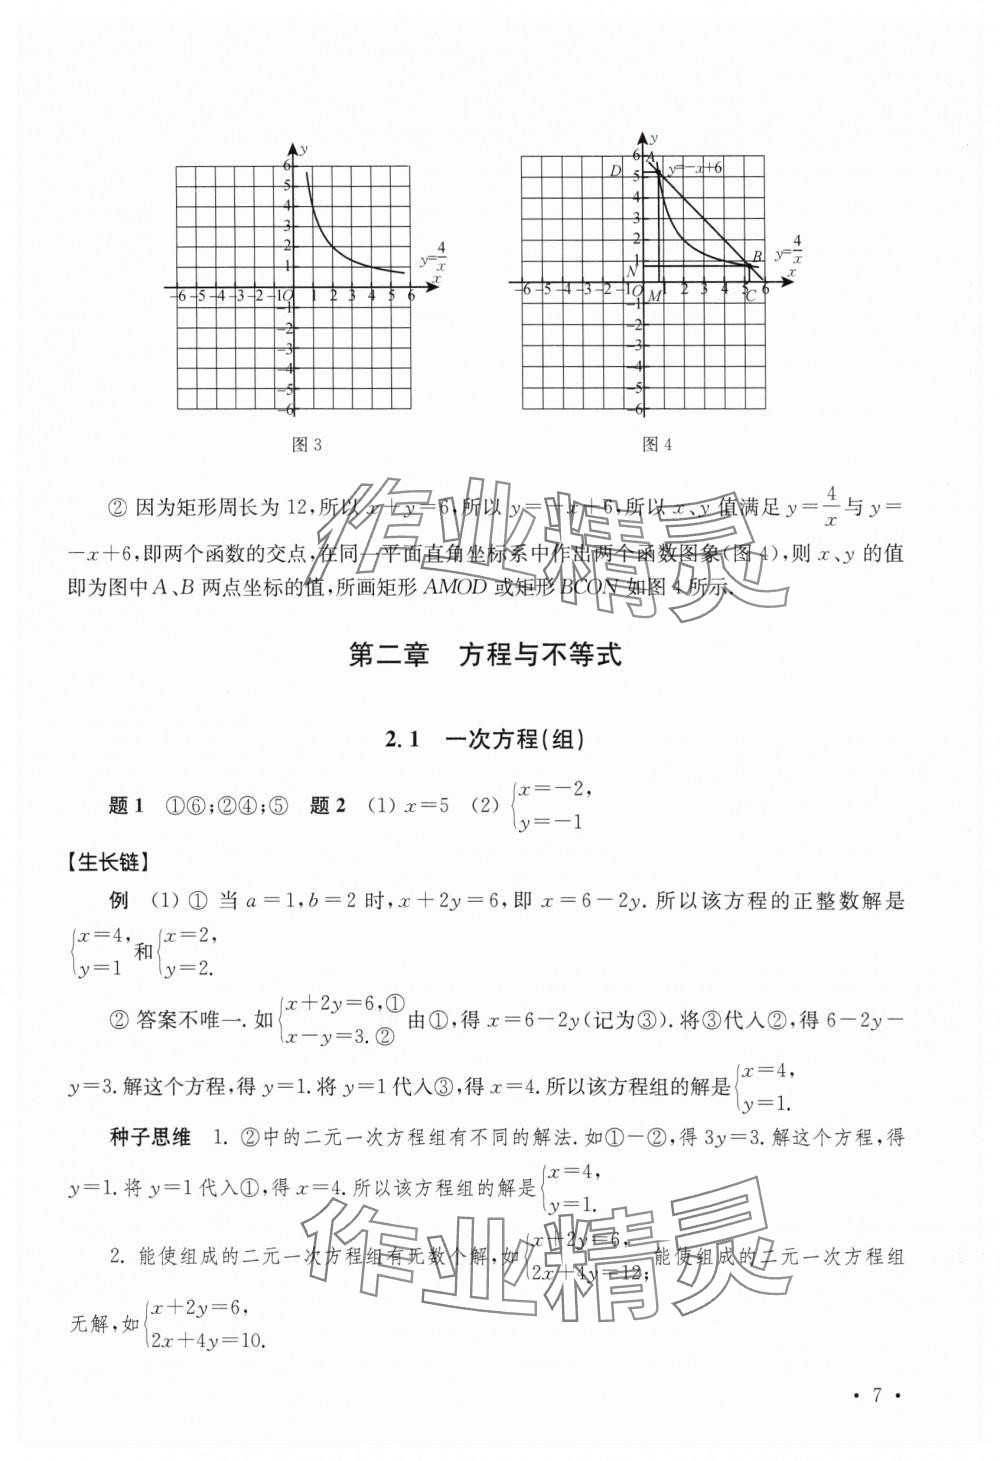 图3
图4
② 因为矩形周长为 12,所以 x+y=6,所以 y=-x+6,所以 x、y 值满足 y=4/x 与 y=
-x+6,即两个函数的交点,在同一平面直角坐标系中作出两个函数图象(图 4),则 x、y 的值
即为图中 A、B 两点坐标的值,所画矩形 AMOD 或矩形 BCON 如图 4 所示.
第二章 方程与不等式
2.1 一次方程(组)
题1 ①⑥;②④;⑤ 题2 (1) x=5 (2) {x=-2, y=-1
【生长链】
例 (1) ① 当 a=1,b=2 时,x+2y=6,即 x=6-2y.所以该方程的正整数解是
{x=4, y=1 和 {x=2, y=2.
② 答案不唯一.如 {x+2y=6,① x-y=3.② 由①,得 x=6-2y(记为③).将③代入②,得 6-2y-
y=3.解这个方程,得 y=1.将 y=1 代入③,得 x=4.所以该方程组的解是 {x=4, y=1.
种子思维 1. ②中的二元一次方程组有不同的解法.如①-②,得 3y=3.解这个方程,得
y=1.将 y=1 代入①,得 x=4.所以该方程组的解是 {x=4, y=1.
2. 能使组成的二元一次方程组有无数个解,如 {x+2y=6, 2x+4y=12; 能使组成的二元一次方程组
无解,如 {x+2y=6, 2x+4y=10.
· 7 ·
作业精灵
作业精灵